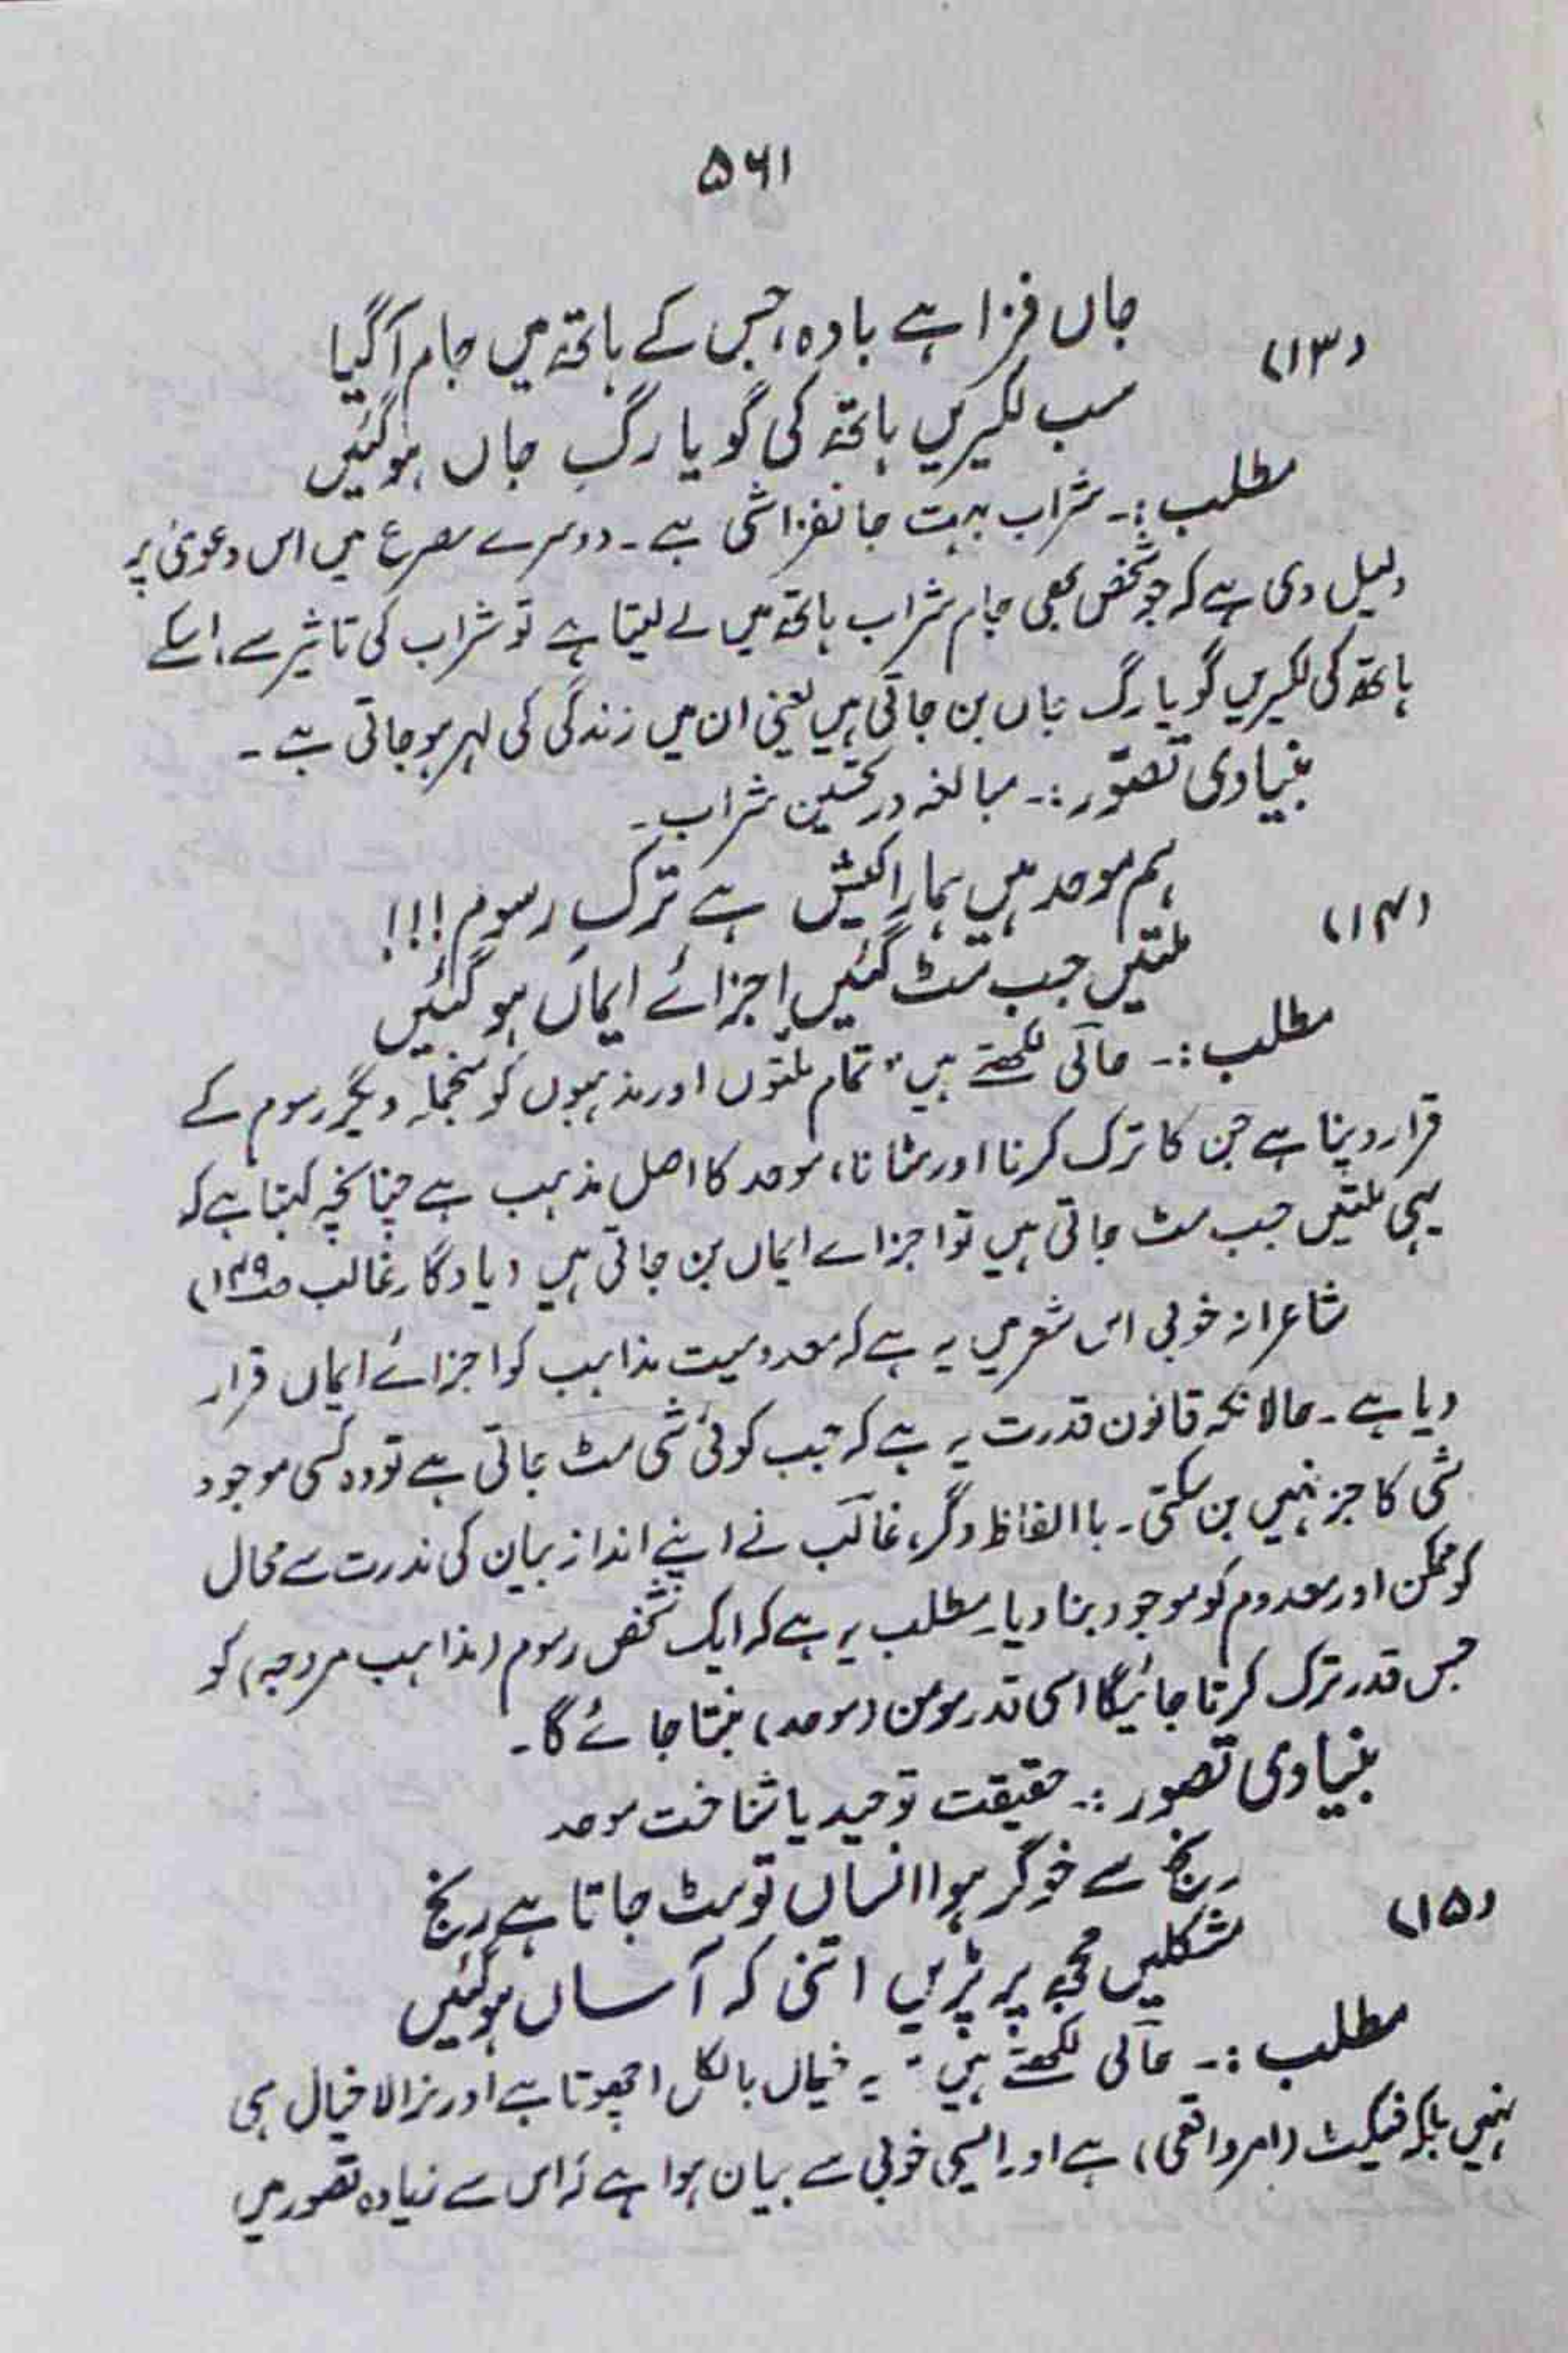 ۵۶۱
(۱۳) جاں فزا ہے بادہ، جس کے ہاتھ میں جام آگیا
سب لکیریں ہاتھ کی گویا رگِ جاں ہوگئیں
مطلب :۔ شراب بہت جانفزا شی ہے۔ دوسرے مصرع میں اس دعویٰ پر
دلیل دی ہے کہ جو شخص بھی جام شراب ہاتھ میں لے لیتا ہے تو شراب کی تاثیر سے، اسکے
ہاتھ کی لکیریں گویا رگ جاں بن جاتی ہیں یعنی ان میں زندگی کی لہر ہوجاتی ہے ۔
بنیادی تصوّر :۔ مبالغہ در تحسین شراب۔
(۱۴) ہم موحد ہیں ہمارا کیش ہے ترکِ رسوم!!!
ملتیں جب مٹ گئیں اجزائے ایماں ہو گئیں
مطلب :۔ حالی لکھتے ہیں "تمام ملتوں اور مذہبوں کو منجملہ دیگر رسوم کے
قرار دیتا ہے جن کا ترک کرنا اور مٹانا، موحد کا اصل مذہب ہے چنانچہ کہتا ہے کہ
یہی ملتیں جب مٹ جاتی ہیں تو اجزاے ایماں بن جاتی ہیں (یادگار غالب صـ۱۴۹)
شاعرانہ خوبی اس شعر میں یہ ہے کہ معدومیت مذاہب کو اجزائے ایماں قرار
دیا ہے ۔ حالانکہ قانون قدرت یہ ہے کہ جب کوئی شی مٹ جاتی ہے تو وہ کسی موجود
شی کا جز نہیں بن سکتی۔ باالفاظ دگر، غالب نے اپنے انداز بیان کی ندرت سے محال
کو ممکن اور معدوم کو موجود بنا دیا۔ مطلب یہ ہے کہ ایک شخص رسوم (مذاہب مروجہ) کو
جس قدر ترک کرتا جائیگا اسی قدر مومن (موحد) بنتا جائے گا۔
بنیادی تصور :۔ حقیقت توحید یا شناخت موحد
(۱۵) رنج سے خوگر ہوا انساں تو مٹ جاتا ہے رنج
مشکلیں مجھ پر پڑیں اتنی کہ آساں ہوگئیں
مطلب :۔ حالی لکھتے ہیں "یہ خیال بالکل اچھوتا ہے اور نرالا خیال ہی
نہیں بلکہ فیکٹ (امر واقعی) ہے اور ایسی خوبی سے بیان ہوا ہے کہ اس سے زیادہ تصور میں